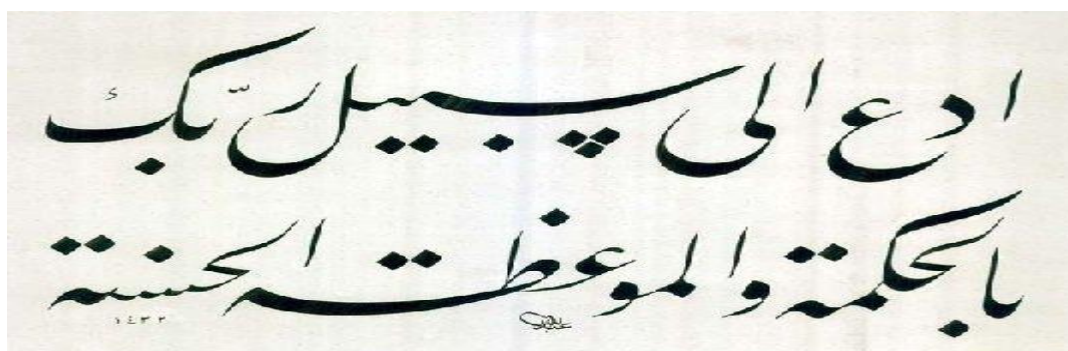 ادع الى سبيل ربّك
بالحكمة والموعظة الحسنة
١٤٣٢